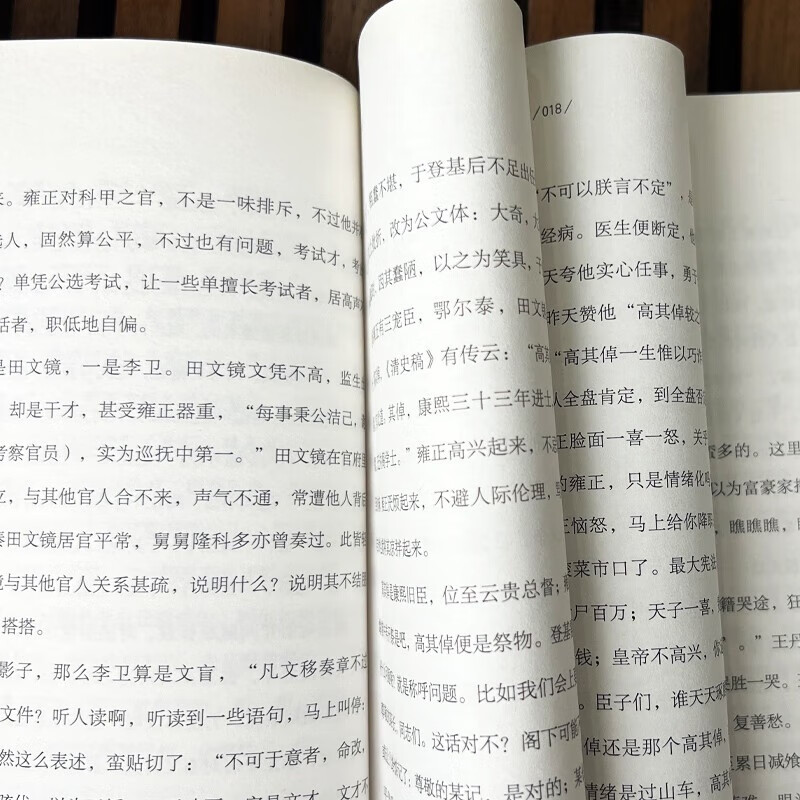 来。雍正对科甲之官，不是一味排斥，不过他并
选人，固然算公平，不过也有问题，考试才，考
？单凭公选考试，让一些单擅长考试者，居高声
话者，职低地自偏。
是田文镜，一是李卫。田文镜文凭不高，监生
，却是干才，甚受雍正器重，“每事秉公洁己，
考察官员），实为巡抚中第一。”田文镜在官府里
立，与其他官人合不来，声气不通，常遭他人背
奏田文镜居官平常，舅舅隆科多亦曾奏过。此皆
境与其他官人关系甚疏，说明什么？说明其不结
搭搭。
影子，那么李卫算是文盲，“凡文移奏章不过
文件？听人读啊，听读到一些语句，马上叫停：
然这么表述，蛮贴切了：“不可于意者，命改，
不堪，于登基后不足出
，改为公文体：大奇，
因其蠢陋，以之为笑具，于
有三宠臣，鄂尔泰，田文
《清史稿》有传云：“高
其倬，康熙三十三年进士
学士。”雍正高兴起来，不
烦起来，不避人际伦理，
样起来。
康熙旧臣，位至云贵总督；
吧，高其倬便是祭物。登基
就是称呼问题。比如我们会上
同志们。这话对不？阁下可能
了，尊敬的某记，是对的；某
/018/
“不可以朕言不定”，
经病。医生便断定，
天夸他实心任事，勇于
昨天赞他“高其倬较之
“高其倬一生惟以巧作
人全盘肯定，到全盘否
正脸面一喜一怒，关乎
的雍正，只是情绪化
王恼怒，马上给你降职
菜市口了。最大宪法
尸百万；天子一喜，
钱；皇帝不高兴，你
。臣子们，谁天天琢
倬还是那个高其倬，
情绪是过山车，高其
多的。这里
以为富豪家
，瞧瞧瞧，
籍哭途，狂
。”王丹
胜一哭。
复善愁。
累日减飧